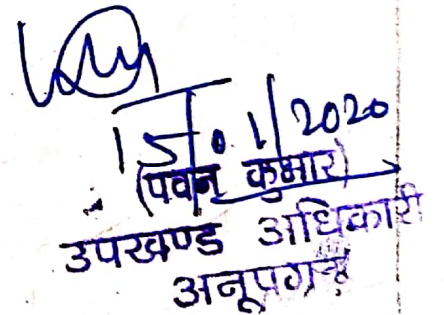 15.1/2020
(पवन कुमार)
उपखण्ड अधिकारी
अनूपगढ़